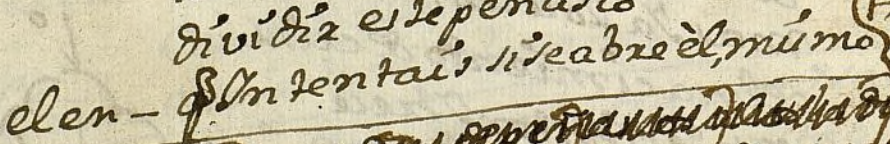 dividir este peñasco
elen - q̃ Intentais si se abre èl, mismo